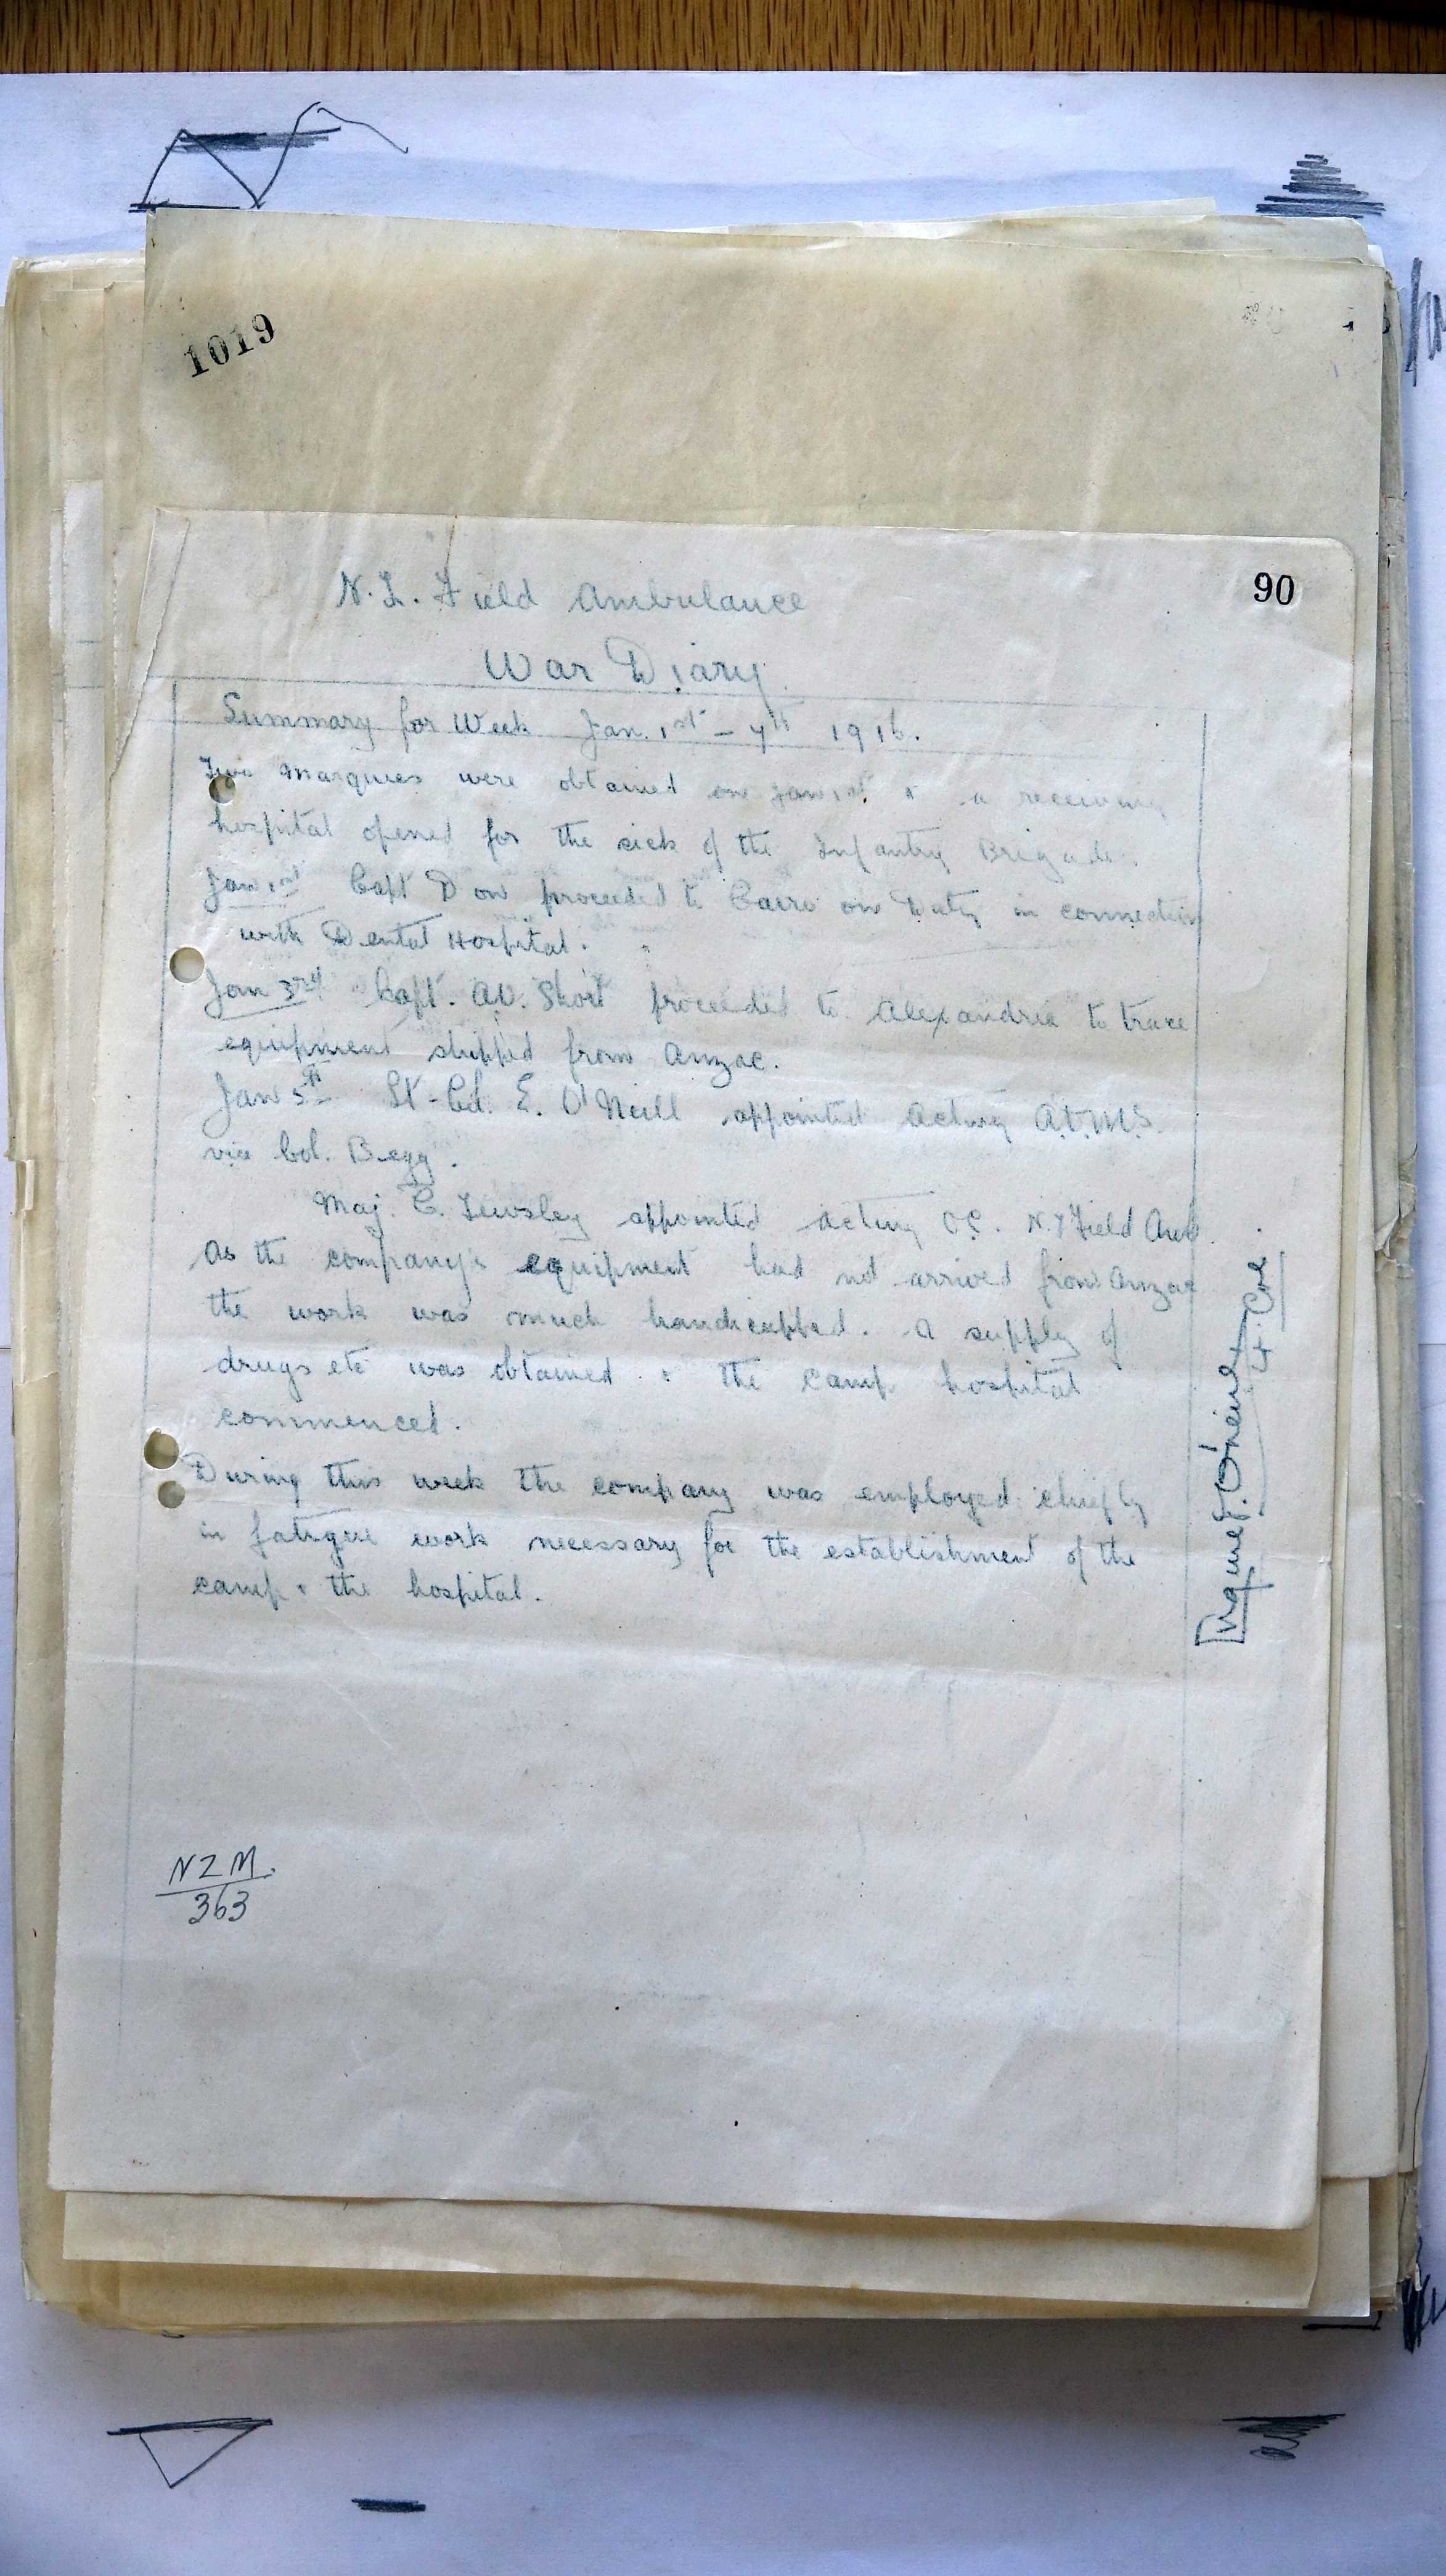 1019
90
N.Z. Field Ambulance
War Diary.
Summary for Week Jan. 1st – 7th 1916.
Two Marquees were obtained on Jan 1st & a receiving
hospital opened for the sick of the Infantry Brigade.
Jan 1st Capt Don proceeded to Cairo on Duty in connection
with Dental Hospital.
Jan 3rd Capt. A.V. Short proceeded to Alexandria to trace
equipment shipped from Anzac.
Jan 5th Lt-Col. E. O'Neill appointed Acting A.D.M.S.
vice Col. Begg.
Maj. C. Tewsley appointed acting O.C. N.Z Field Amb.
As the company's equipment had not arrived from Anzac
the work was much handicapped. A supply of
drugs etc was obtained & the camp hospital
commenced.
During this week the company was employed chiefly
in fatigue work necessary for the establishment of the
camp & the hospital.
O'Neill
Lt. Col.
NZM.
363